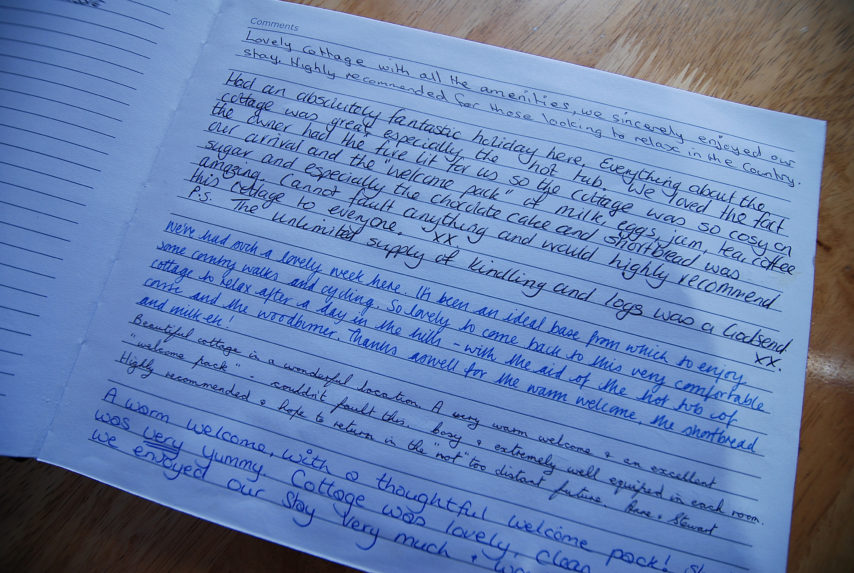 Comments
Lovely cottage with all the amenities, we sincerely enjoyed our
stay. Highly recommended for those looking to relax in the country.
Had an absolutely fantastic holiday here. Everything about the
cottage was great especially the hot tub. We loved the fact
the owner had the fire lit for us so the cottage was so cosy on
our arrival and the "welcome pack" of milk, eggs, jam, tea, coffee
sugar and especially the chocolate cake and shortbread was
amazing. Cannot fault anything and would highly recommend
this cottage to everyone. xx
P.S. The unlimited supply of kindling and logs was a Godsend
xx.
We've had such a lovely week here. It's been an ideal base from which to enjoy
some country walks and cycling. So lovely to come back to this very comfortable
cottage to relax after a day in the hills - with the aid of the hot tub of
course and the woodburner. Thanks aswell for the warm welcome, the shortbread
and milk etc!
Beautiful cottage in a wonderful location. A very warm welcome & an excellent
"welcome pack" - couldn't fault this. Cosy & extremely well equiped in each room.
Highly recommended & hope to return in the "not" too distant future. & Stewart
A warm welcome, with a thoughtful welcome pack!
was very yummy. Cottage was lovely, clean
we enjoyed our stay very much &